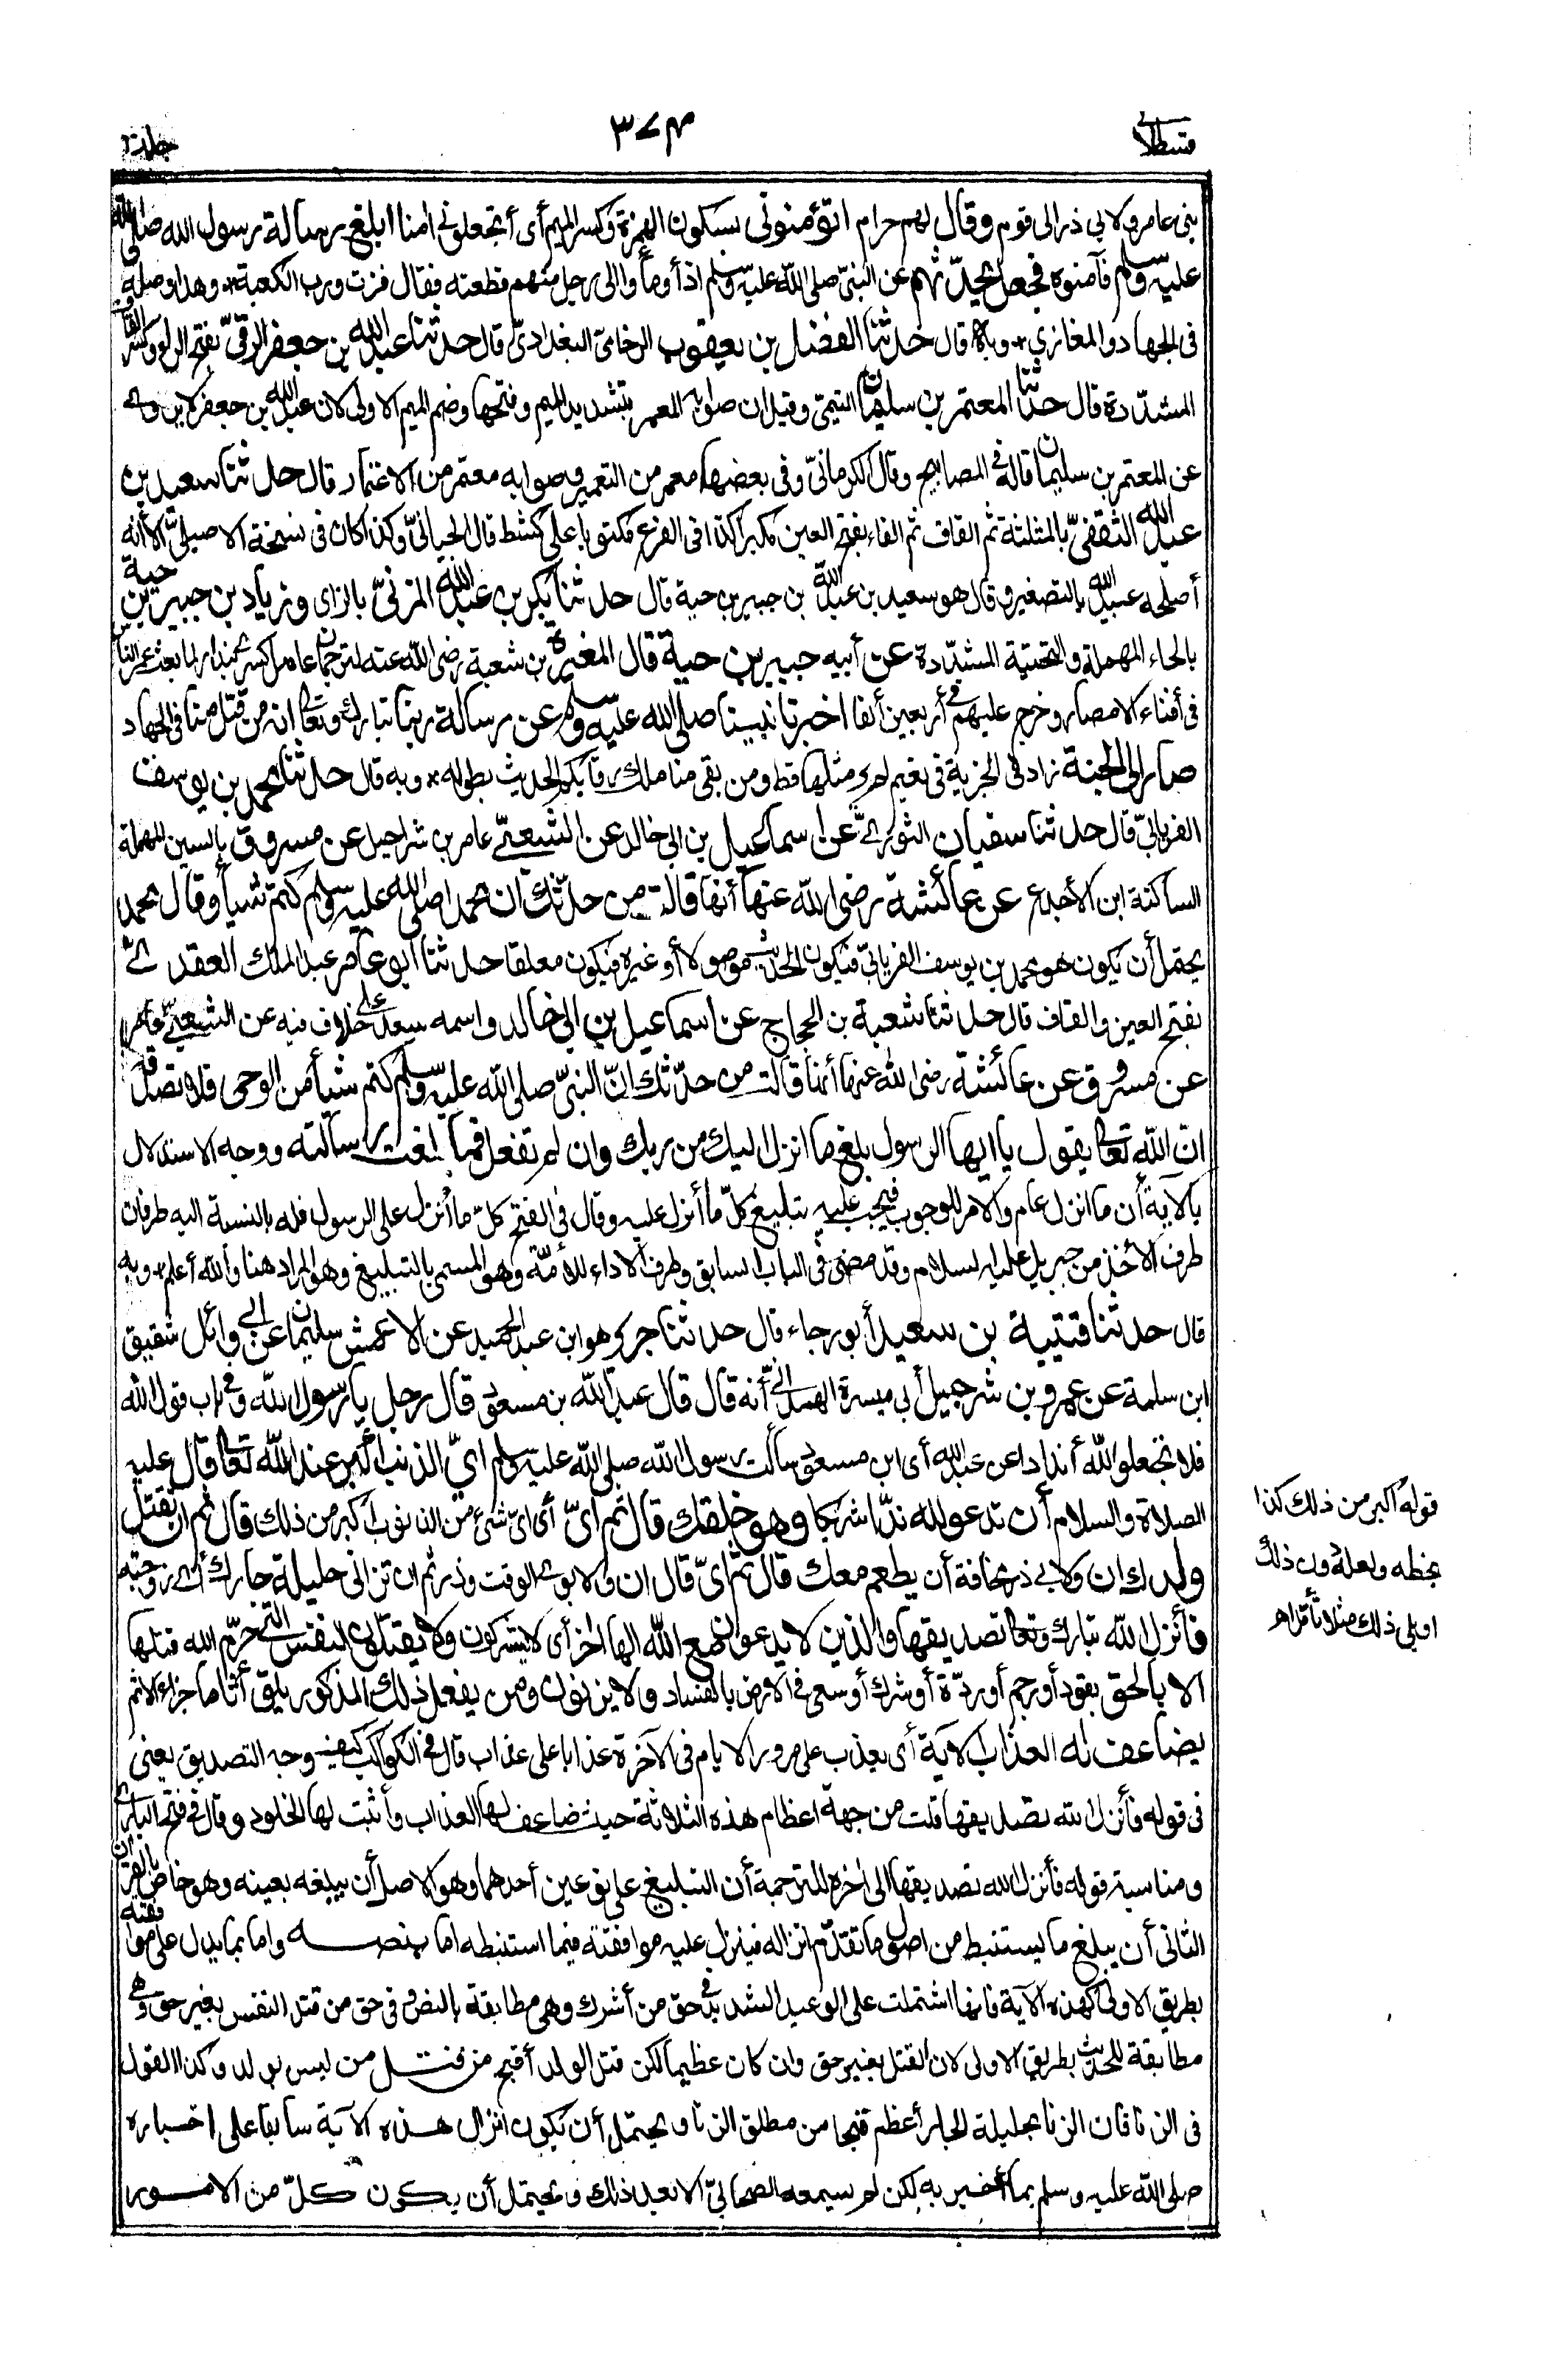 قسطلانى
٣٧٤
جلد
بنى عامر ولابي ذر الى قوم وقال لهم حرام اتؤمنونى بسكون الهمزة وكسر الميم أى أتجعلونى امنا ابلغ رسالة رسول الله صلى الله
عليه وسلم فآمنوه فجعل يحدّثهم عن النبىّ صلى الله عليه وسلم اذ أومأوا الى رجل منهم فطعنه فقال فزت ورب الكعبة * وهذا وصله
فى الجهاد والمغازي * وبه قال حدثنا الفضل بن يعقوب الرخامىّ البغدادىّ قال حدثنا عبد الله بن جعفر الرقىّ بفتح الراء وكسر القاف
المشدّدة قال حدّثنا المعتمر بن سليمان التيمىّ وقيل ان صوابه المعمر بتشديد الميم وفتحها وضم الميم الاولى لان عبد الله بن جعفر لا يروى
عن المعتمر بن سليمان قاله فى المصابيح وقال الكرمانىّ وفى بعضها معمر من التعمير وصوابه معتمر من الاعتمار قال حدثنا سعيد بن
عبد الله الثقفىّ بالمثلثة ثم القاف ثم الفاء بفتح العين مكبرا كذا فى الفرع مكتوبا على كشط قال الجيانىّ وكذا كان فى نسخة الاصيلىّ الا أنه
أصلحه عبيد الله بالتصغير وقال هو سعيد بن عبد الله بن جبير بن حية قال حدثنا بكر بن عبد الله المزنىّ بالزاى وزياد بن جبير بن حية
بالحاء المهملة والتحتية المشدّدة عن أبيه جبير بن حية قال المغيرة بن شعبة رضى الله عنه لترجمان عامل كسرى بندار لما بعث عمر الناس
فى أفناء الامصار وخرج عليهم فى أربعين ألفا اخبرنا نبينا صلى الله عليه وسلم عن رسالة ربنا تبارك وتعالى انه من قتل منا فى الجهاد
صار الى الجنة زاد فى الجزية فى نعيم لم ير مثلها قط ومن بقى منا ملك رقابكم الحديث بطوله * وبه قال حدثنا محمد بن يوسف
الفريابىّ قال حدثنا سفيان الثورىّ عن اسماعيل بن ابى خالد عن الشعبىّ عامر بن شراحيل عن مسروق بالسين المهملة
الساكنة ابن الاجدع عن عائشة رضى الله عنها أنها قالت من حدّثك ان محمدا صلى الله عليه وسلم كتم شيأ وقال محمد
يحتمل أن يكون هو محمد بن يوسف الفريابىّ فيكون الحديث موصولا أو غيره فيكون معلقا حدثنا ابو عامر عبد الملك العقدىّ
بفتح العين والقاف قال حدثنا شعبة بن الحجاج عن اسماعيل بن ابى خالد واسمه سعد على خلاف فيه عن الشعبىّ عامر
عن مسروق عن عائشة رضى الله عنها أنها قالت من حدّثك انّ النبىّ صلى الله عليه وسلم كتم شيأ من الوحى فلا تصدّقه
انّ الله تعالى يقول يا ايها الرسول بلغ ما انزل اليك من ربك وان لم تفعل فما بلغت رسالته ووجه الاستدلال
بالآية أن ما انزل عام والامر للوجوب فيجب عليه تبليغ كلّ ما أنزل عليه وقال فى الفتح كلّ ما أنزل على الرسول فله بالنسبة اليه طرفان
طرف الاخذ من جبريل عليه السلام وقد مضى فى الباب السابق وطرف الاداء للأمّة وهو المسمى بالتبليغ وهو المراد هنا والله أعلم * وبه
قال حدثنا قتيبة بن سعيد أبو رجاء قال حدثنا جرير هو ابن عبد الحميد عن الاعمش سليمان عن ابى وائل شقيق
ابن سلمة عن عمرو بن شرحبيل أبى ميسرة الهمدانىّ أنه قال قال عبد الله بن مسعود قال رجل يا رسول الله وفى باب قول الله
فلا تجعلوا لله أندادا عن عبد الله أى ابن مسعود سألت رسول الله صلى الله عليه وسلم اىّ الذنب اكبر عند الله تعالى قال عليه
الصلاة والسلام أن تدعو لله ندّا شريكا وهو خلقك قال ثم اىّ أى اىّ شىء من الذنوب اكبر من ذلك قال ثم ان تقتل
ولدك ان ولابى ذر مخافة أن يطعم معك قال ثم اىّ قال ان ولابوى الوقت وذر ثم ان تزانى حليلة جارك أى زوجته
فأنزل الله تبارك وتعالى تصديقها والذين لا يدعون مع الله الها اخر أى لا يشركون ولا يقتلون النفس التى حرّم الله قتلها
الا بالحق بقود أو رجم أو ردّة أو شرك أو سعى فى الارض بالفساد ولا يزنون ومن يفعل ذلك المذكور يلق أثاما جزاء الاثم
يضاعف له العذاب الآية أى يعذب على مرور الايام فى الآخرة عذابا على عذاب قال فى الكواكب كيف وجه التصديق يعنى
فى قوله فأنزل الله تصديقها قلت من جهة اعظام هذه الثلاثة حيث ضاعف لها العذاب وأثبت لها الخلود وقال فى فتح البارى
ومناسبة قوله فأنزل الله تصديقها الى اخره للترجمة أن التبليغ على نوعين أحدهما وهو الاصل أن يبلغه بعينه وهو خاص بالقرآن
الثانى أن يبلغ ما يستنبط من اصول ما تقدّم انزاله فينزل عليه موافقته فيما استنبطه اما بنصه واما بما يدل على موافقته
بطريق الاولى كهذه الآية فانها اشتملت على الوعيد الشديد فى حق من أشرك وهى مطابقة بالنص وفى حق من قتل النفس بغير حق وهى
مطابقة للحديث بطريق الاولى لان القتل بغير حق وان كان عظيما لكن قتل الولد أقبح من قتل من ليس بولد وكذا القول
فى الزنا فان الزنا بحليلة الجار أعظم قبحا من مطلق الزنا ويحتمل أن يكون انزال هذه الآية سابقا على اخباره
صلى الله عليه وسلم بما أخبر به لكن لم يسمعه الصحابىّ الا بعد ذلك ويحتمل أن يكون كلّ من الامور
قوله اكبر من ذلك كذا
بخطه ولعله دون ذلك
او يلى ذلك مثلا تأمل اهـ